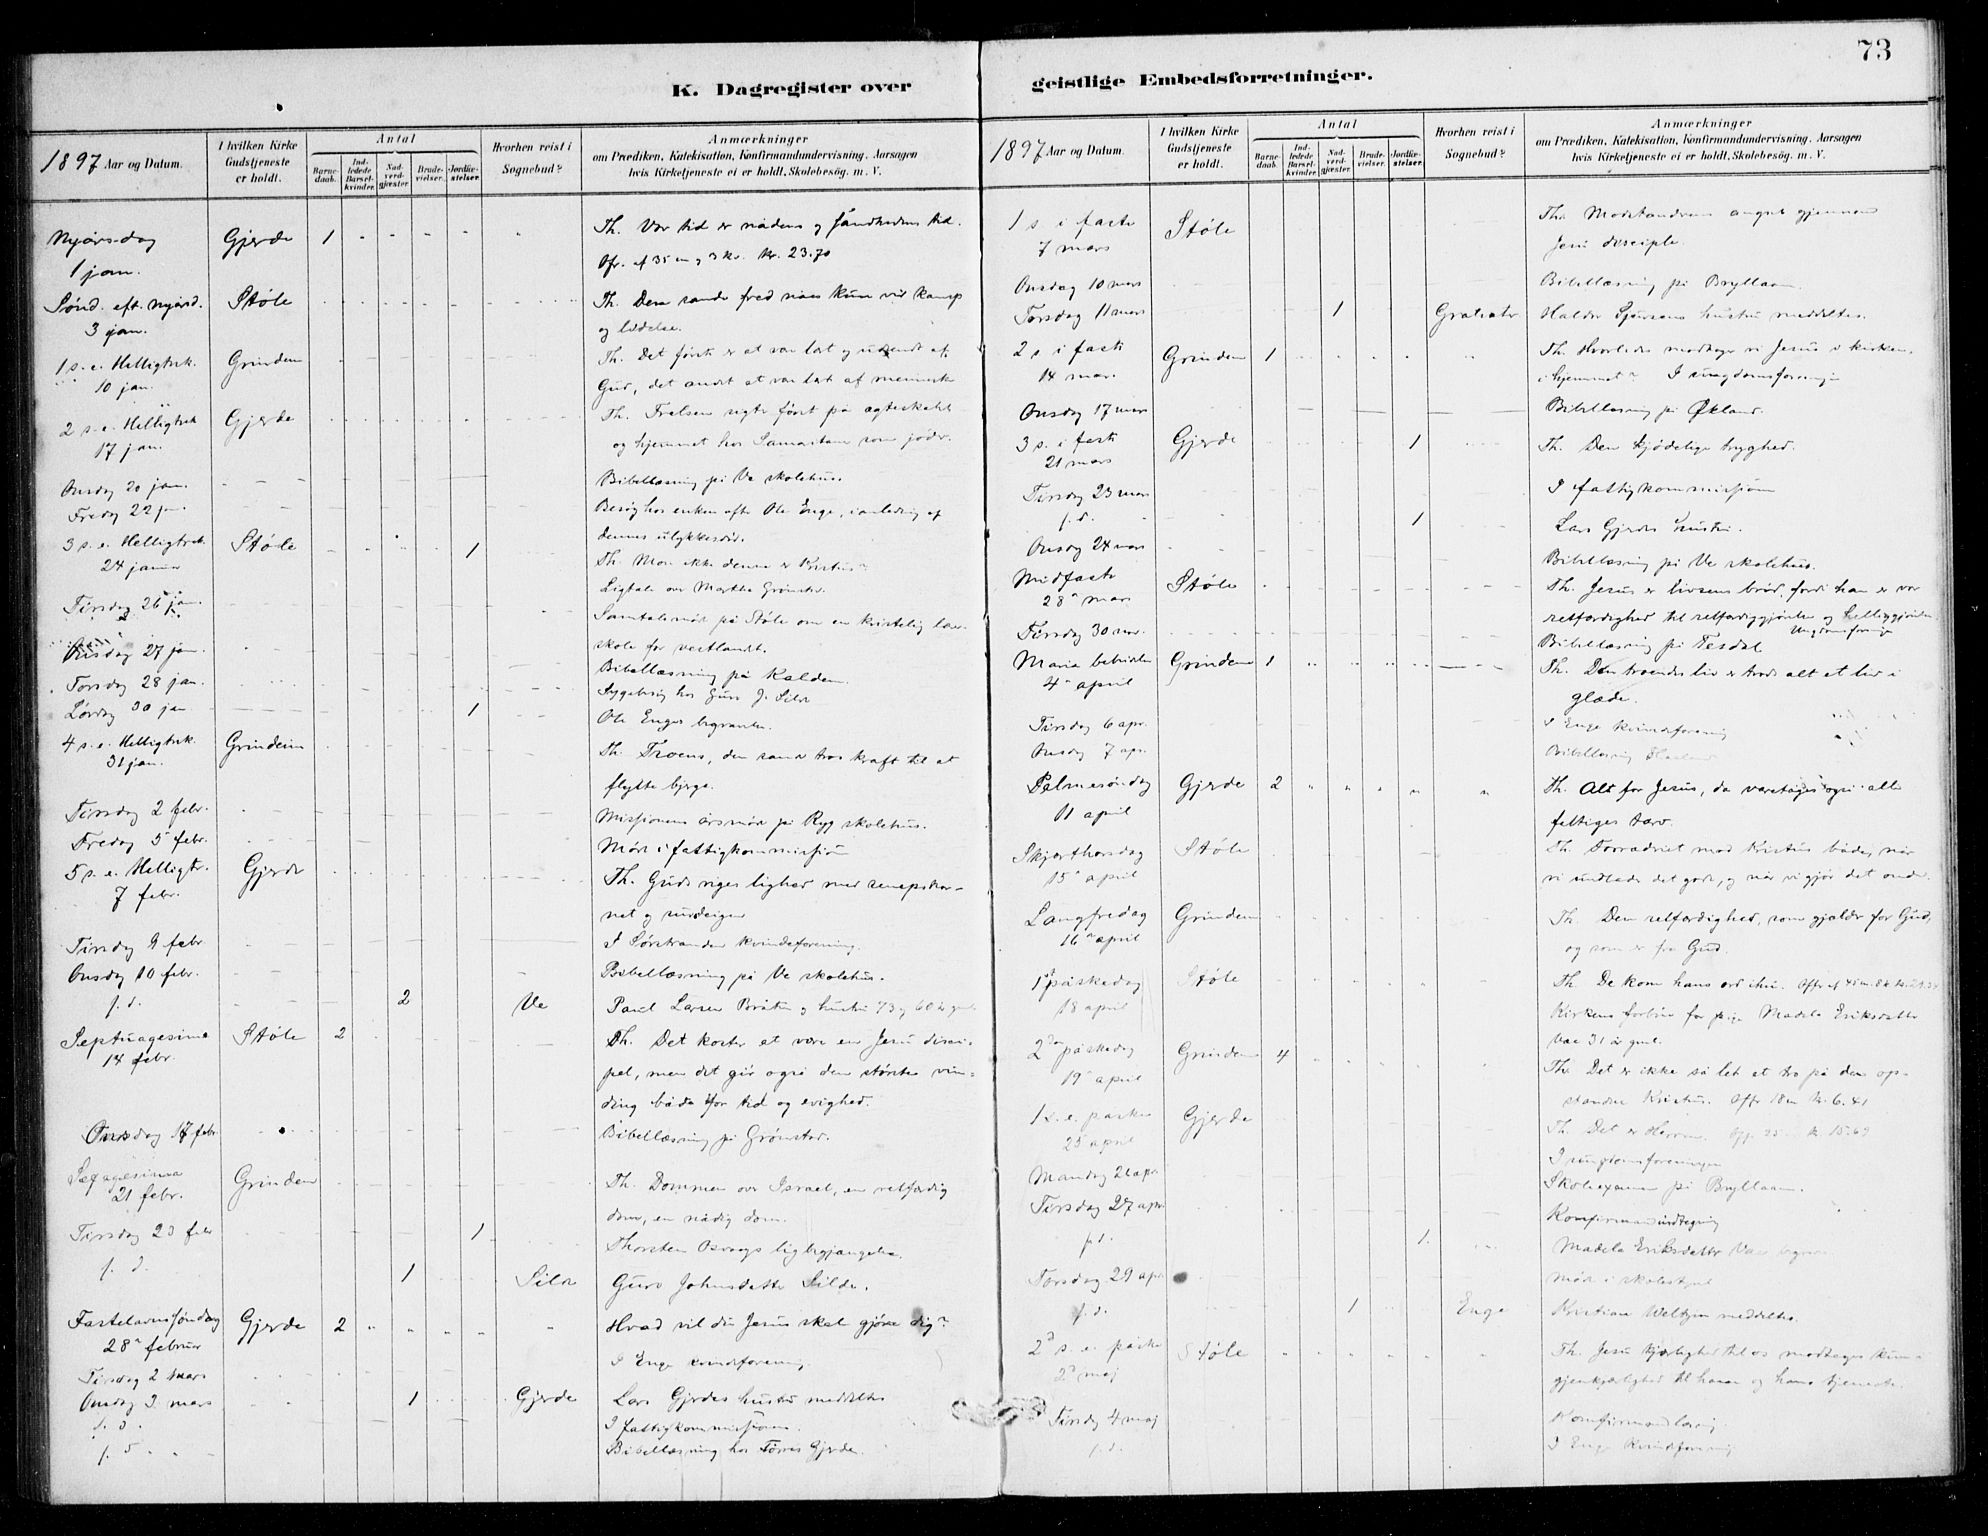 73
K. Dagregister over geistlige Embedsforretninger.
1897 Aar og Datum.
I hvilken Kirke Gudstjeneste er holdt.
Antal
Barnedaab.
Indledede Barselkvinder.
Nadverdgjæster.
Brudevielser.
Jordfæstelser.
Hvorhen reist i Sognebud?
Anmærkninger
om Prædiken, Katekisation, Konfirmandundervisning, Aarsagen
hvis Kirketjeneste ei er holdt, Skolebesög. m. V.
Nyårsdag Gjerde 1 Th. Vor tid er nådens og sandhedens tid.
1 jan. Ofr. af 35 m og 3 kv. kr. 23.70
Sønd. eft. nyårsd. Støle Th. Den sande fred naaes kun ved kamp
3 jan. og lidelse.
1 s. e. Helligtrek. Grindem Th. Det første er at være lært og udsendt af
10 jan. Gud, det andet at være lært af mennesker
2 s. e. Helligtrek. Gjerde Th. Frelsen sigter først på ægteskabet
17 jan. og hjemmet hos Samaritan som jøder.
Onsdag 20 jan. Bibellæsning på Ve skolehus.
Fredag 22 jan. Besøg hos enken efter Ole Enge, i anledning af
dennes ulykkesdød.
3 s. e. Helligtrek. Støle 1 Th. Mon ikke denne er Kristus?
24 januar Ligtale over Marthe Grønstad.
Tirsdag 26 jan. Samtalemøde på Støle om en kristelig lærer-
skole for vestlandet.
Onsdag 27 jan. Bibellæsning på Kalden.
Torsdag 28 jan. Sygebesøg hos Guro J. Silde
Lørdag 30 jan 1 Ole Enges begravelse.
4 s. e. Helligtrek. Grindeim Th. Troens, den sande tros kraft til at
31 jan. flytte bjerge.
Tirsdag 2 febr. Missionens årsmøde på Ryg skolehus.
Fredag 5 febr. Møde i fattigkommission
5 s. e. Helligtr. Gjerde Th. Guds riges lighed med senepskor-
7 febr. net og surdeigen
Tirsdag 9 febr I Sørstranden kvindeforening.
Onsdag 10 febr. Bibellæsning på Ve skolehus.
s. d. 2 Ve Paul Larsen Bråten og hustru 73 og 60 år gml.
Septuagesima Støle 2 Th. Det koster at være en Jesu disci-
14 febr. pel, men det gir også den største vin-
ding både for tid og evighed.
Onsdag 17 febr. Bibellæsning på Grønstad.
Sexagesima Grindem Th. Dommen over Israel, en retfærdig
21 febr. dom, en nådig dom.
Tirsdag 23 febr 1 Thorsten Osvags ligbegjængelse.
s. d. 1 Silde Guro Johnsdatter Silde.
Fastelavnssøndag Gjerde 2 Hvad vil du Jesus skal gjøre dig?
28 februar
Tirsdag 2 mars I Enge kvindeforening
Onsdag 3. mars 1 Gjerde Lars Gjerdes hustru meddeltes
s. d. I fattigkommissionen.
Bibellæsning hos Tørres Gjerde.
1897 Aar og Datum.
I hvilken Kirke Gudstjeneste er holdt.
Antal
Barnedaab.
Indledede Barselkvinder.
Nadverdgjæster.
Brudevielser.
Jordfæstelser.
Hvorhen reist i Sognebud?
Anmærkninger
om Prædiken, Katekisation, Konfirmandundervisning, Aarsagen
hvis Kirketjeneste ei er holdt, Skolebesög. m. V.
1 s. i faste Støle Th. Modstanderens angreb gjennem
7 mars Jesu disciple.
Onsdag 10 mars Bibellæsning på Bryllaam.
Torsdag 11 mars 1 hustru meddeltes.
2 s. i faste Grindem 1 Th. Hvorledes modtager vi Jesus i kirken,
14 mar. i hjemmet? I ungdomsforeningen
Onsdag 17 mars Bibellæsning på Økland.
3 s. i faste Gjerde 1 Th. Den kjødelige tryghed.
21 mars
Tirsdag 23 mars I fattigkommission
s. d. 1 Lars Gjerdes hustru.
Onsdag 24 mars Bibellæsning på Ve skolehus.
Midfaste Støle Th. Jesus er livsens brød, fordi han er vor
28 mars retfærdighed til retfærdiggjørelse og helliggjørelse.
Ungdomsforening
Tirsdag 30 mar. Bibellæsning på Tesdal
Maria bebudelse Grindem 1 Th. Den troendes liv er trods alt et liv i
4 april glæde.
Tirsdag 6 apr. I Enge kvindeforening
Onsdag 7 apr. Bibellæsning
Palmesøndag Gjerde 2 Th. Alt for Jesus, da varetages også alle
11 april fattiges tarv.
Skjærthorsdag Støle Th. Forræderiet mod Kristus både, når
15 april vi undlader det gode, og når vi gjør det onde.
Langfredag Grindem Th. Den retfærdighed, som gjælder for Gud,
16 april og som er fra Gud.
1 påskedag Støle Th. De kom hans ord ihu.
18 april Kirkens forbøn for pige Madela Eriksdatter
Vae 31 år gml.
2 påskedag Grindem 4 Th. Det er ikke så let at tro på den op-
19 april standne Kristus. Ofr 18 m kr. 6.41
1 s. e. påske Gjerde Th. Det er Herren. kr. 15.69
25 april I ungdomsforeningen
Mandag 26 apr. Skoleexamen på Bryllaam.
Tirsdag 27 apr. Konfirmandindtegning
s. d. 1 Madela Eriksdatter Vae
Torsdag 29 apr. Møde i skolestyret
s. d. 1 Enge Kristiane meddeltes.
2 s. e. påske Støle Th. Jesu kjærlighed til os modtages kun
2 maj gjenkjærlighed til ham og hans tjeneste.
Tirsdag 4 maj Konfirmandlæsning
s. d. I Enge kvindeforening